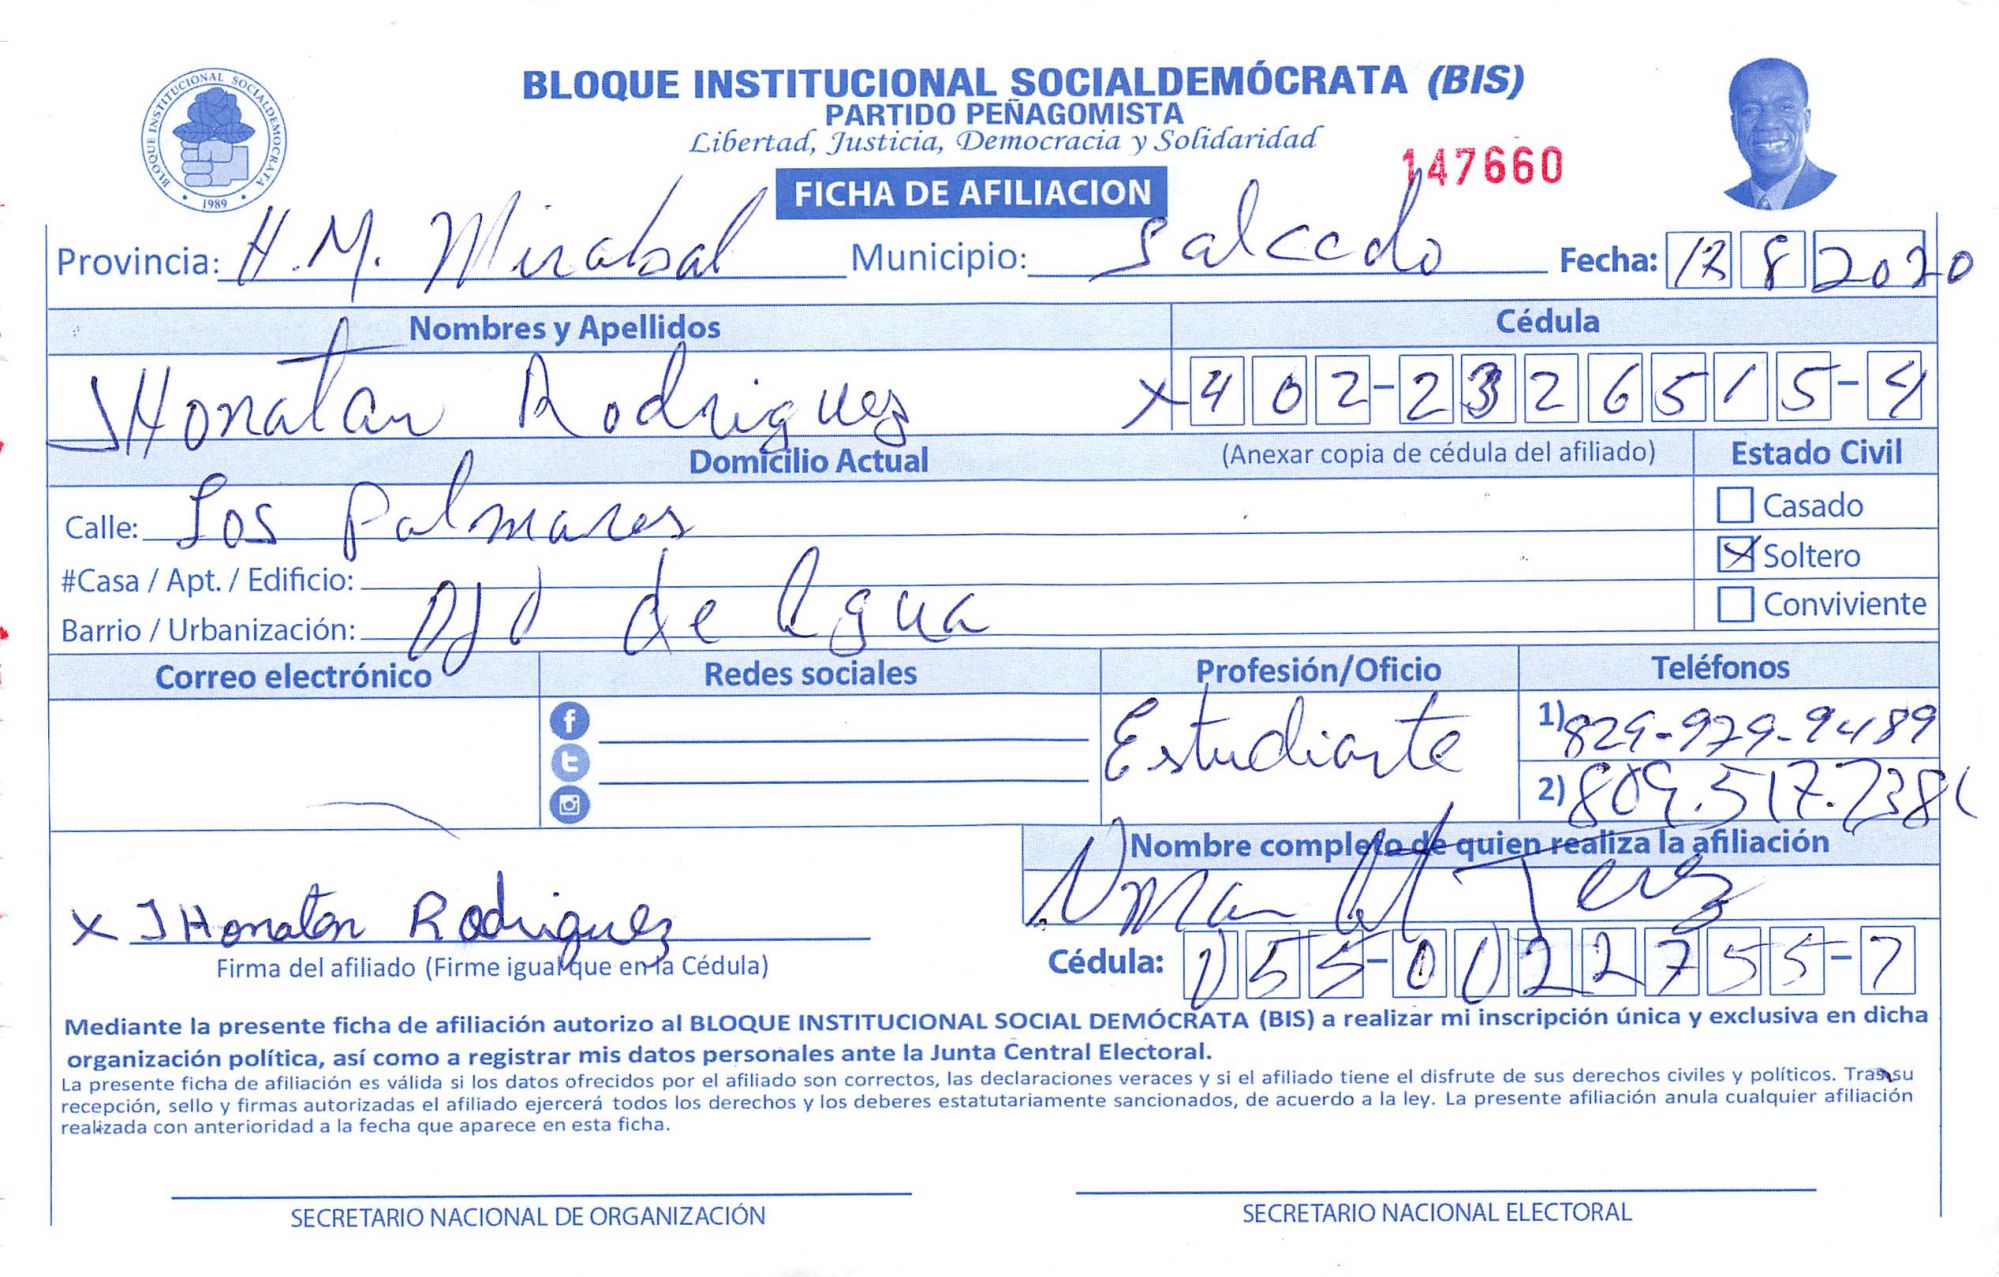 BLOQUE INSTITUCIONAL SOCIALDEMÓCRATA (BIS)
PARTIDO PEÑAGOMISTA
Libertad, Justicia, Democracia y Solidaridad
BLOQUE INSTITUCIONAL SOCIALDEMOCRATA
• 1989 •
147660
FICHA DE AFILIACION
Provincia: H.M. Mirabal Municipio: Salcedo Fecha: 8 2020
Nombres y Apellidos Cédula
JHonatan Rodriguez x 402-2326515-4
Domicilio Actual (Anexar copia de cédula del afiliado) Estado Civil
Calle: Los Palmares Casado
#Casa / Apt. / Edificio: X Soltero
Barrio / Urbanización: Ojo de Agua Conviviente
Correo electrónico Redes sociales Profesión/Oficio Teléfonos
Estudiante 1) 829-929-9489
2) 809.517.
Nombre completo de quien realiza la afiliación
x JHonatan Rodriguez
Firma del afiliado (Firme igual que en la Cédula) Cédula: 055-0022755-7
Mediante la presente ficha de afiliación autorizo al BLOQUE INSTITUCIONAL SOCIAL DEMÓCRATA (BIS) a realizar mi inscripción única y exclusiva en dicha
organización política, así como a registrar mis datos personales ante la Junta Central Electoral.
La presente ficha de afiliación es válida si los datos ofrecidos por el afiliado son correctos, las declaraciones veraces y si el afiliado tiene el disfrute de sus derechos civiles y políticos. Tras su
recepción, sello y firmas autorizadas el afiliado ejercerá todos los derechos y los deberes estatutariamente sancionados, de acuerdo a la ley. La presente afiliación anula cualquier afiliación
realizada con anterioridad a la fecha que aparece en esta ficha.
SECRETARIO NACIONAL DE ORGANIZACIÓN SECRETARIO NACIONAL ELECTORAL